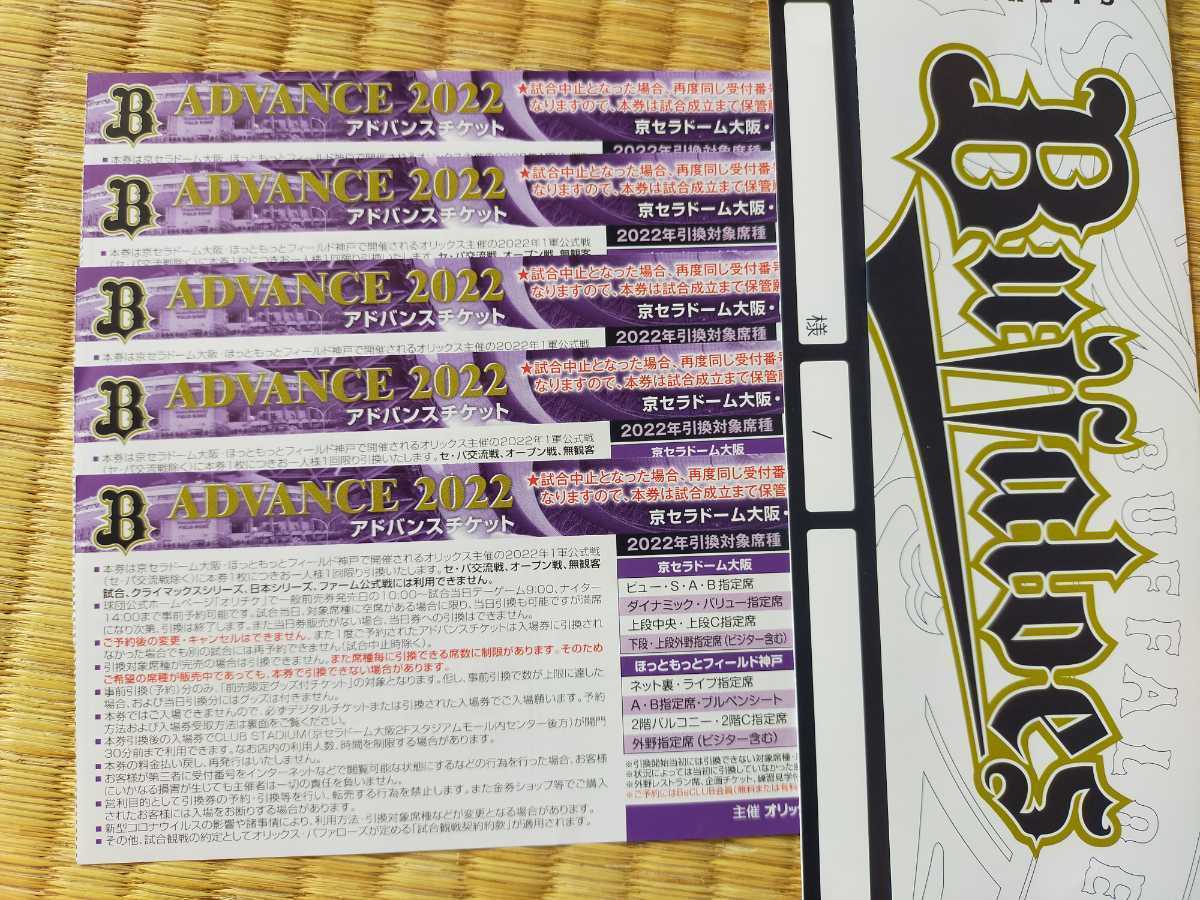 B ADVANCE 2022
アドバンスチケット
★試合中止となった場合、再度同じ受付番
なりますので、本券は試合成立まで保管
京セラドーム大阪・
B ADVANCE 2022
アドバンスチケット
★試合中止となった場合、再度同じ受付番
なりますので、本券は試合成立まで保管
京セラドーム大阪・
■本券は京セラドーム大阪・ほっともっとフィールド神戸で開催されるオリックス主催の2022年1軍公式戦
2022年引換対象席種
B ADVANCE 2022
アドバンスチケット
★試合中止となった場合、再度同じ受付番
なりますので、本券は試合成立まで保管
京セラドーム大阪・
■本券は京セラドーム大阪・ほっともっとフィールド神戸で開催されるオリックス主催の2022年1軍公式戦
2022年引換対象席種
B ADVANCE 2022
アドバンスチケット
★試合中止となった場合、再度同じ受付番
なりますので、本券は試合成立まで保管
京セラドーム大阪・
■本券は京セラドーム大阪・ほっともっとフィールド神戸で開催されるオリックス主催の2022年1軍公式戦
(セ・パ交流戦除く)に本券1枚につきお一人様1回限り引換いたします。セ・パ交流戦、オープン戦、無観客
2022年引換対象席種
京セラドーム大阪
B ADVANCE 2022
アドバンスチケット
★試合中止となった場合、再度同じ受付番
なりますので、本券は試合成立まで保管
京セラドーム大阪・
■本券は京セラドーム大阪・ほっともっとフィールド神戸で開催されるオリックス主催の2022年1軍公式戦
(セ・パ交流戦除く)に本券1枚につきお一人様1回限り引換いたします。セ・パ交流戦、オープン戦、無観客
試合、クライマックスシリーズ、日本シリーズ、ファーム公式戦には利用できません。
■球団公式ホームページ「オリチケ」で一般前売券発売日の10:00〜試合当日デーゲーム9:00、ナイター
14:00まで事前予約可能です。試合当日、対象席種に空席がある場合に限り、当日引換も可能ですが満席
になり次第、引換は終了します。また当日券販売がない場合、当日券への引換はできません。
■ご予約後の変更・キャンセルはできません。また1度ご予約されたアドバンスチケットは入場券に引換され
なかった場合でも別の試合には再予約できません(試合中止時除く)。
■引換対象席種が完売の場合は引換できません。また席種毎に引換できる席数に制限があります。そのため
ご希望の席種が販売中であっても、本券で引換できない場合があります。
■事前引換(予約)分のみ、「前売限定グッズ付チケット」の対象となります。但し、事前引換で数が上限に達した
場合、および当日引換分にはグッズは付きません。
■本券ではご入場できませんので、必ずデジタルチケットまたは引換された入場券でご入場願います。予約
方法および入場券受取方法は裏面をご覧ください。
■本券引換後の入場券でCLUB STADIUM(京セラドーム大阪2Fスタジアムモール内センター後方)が開門
30分前まで利用できます。なお店内の利用人数、時間を制限する場合があります。
■本券の料金払い戻し、再発行はいたしません。
■お客様が第三者に受付番号をインターネットなどで閲覧可能な状態にするなどの行為を行った場合、お客様
にいかなる損害が生じても主催者は一切の責任を負いません。
■営利目的として引換券の予約・引換等を行い、転売する行為を禁止します。また金券ショップ等でご購入
されたお客様には入場をお断りする場合があります。
■新型コロナウイルスの影響や諸事情により、利用方法・引換対象席種などが変更となる場合があります。
■その他、試合観戦の約定としてオリックス・バファローズが定める「試合観戦契約約款」が適用されます。
2022年引換対象席種
京セラドーム大阪
ビュー・S・A・B指定席
ダイナミック・バリュー指定席
上段中央・上段C指定席
下段・上段外野指定席(ビジター含む)
ほっともっとフィールド神戸
ネット裏・ライブ指定席
A・B指定席・ブルペンシート
2階バルコニー・2階C指定席
外野指定席(ビジター含む)
※引換開始当初には引換できない対象席種・
※状況によっては当初に引換していなかった
※外野レストラン席、企画チケット、練習見学付
※ご予約にはBsCLUB会員(無料または有料
主催 オリッ
様
/
Buffaloes
BUFFALOE